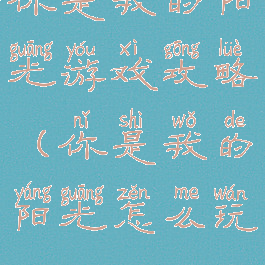 你是我的阳
guāng yóu xì gōng lüè
光游戏攻略
nǐ shì wǒ de
（你是我的
yáng guāng zěn me wán
阳光怎么玩